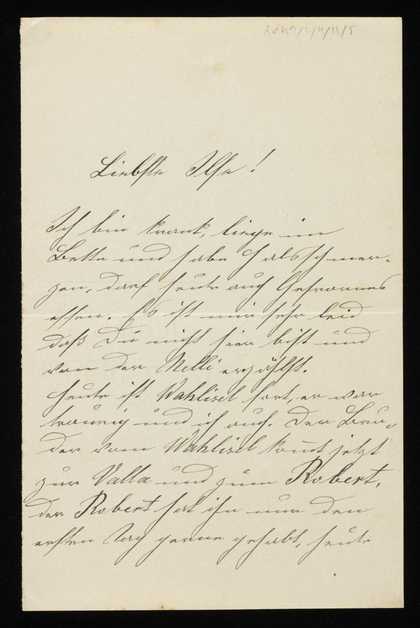 Liebste Ilse!
Ich bin krank, liege im
Bette und habe Halsschmer-
zen, darf heute auch Gefrorenes
essen. Es ist mir sehr leid
daß Du nicht hier bist und
von der Melli erzählst.
Heute ist Wahlisel fort, er war
traurig und ich auch. Der Bru-
der vom Wahlisel kom̄t jetzt
zur Valla und zum Robert,
der Robert hat ihn nur den
ersten Tag gerne gehabt, heute